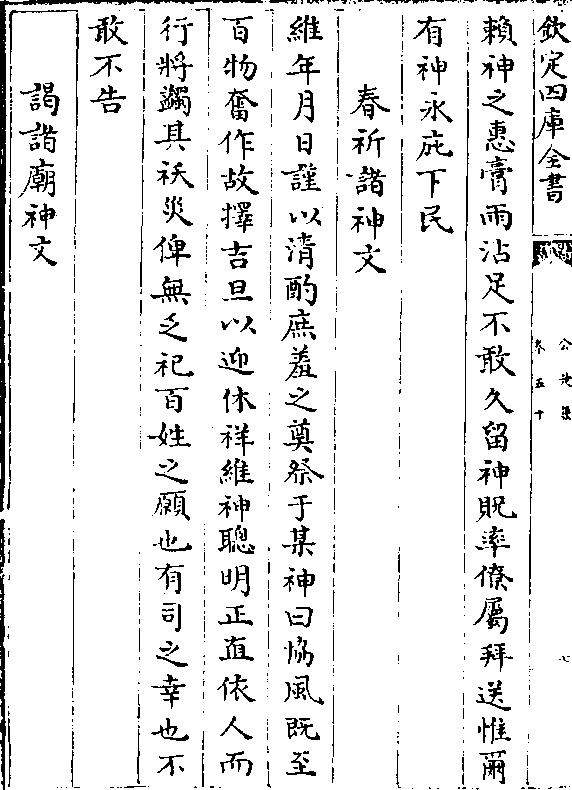 欽定四庫全書
卷五十
七
賴神之惠膏雨沾足不敢久留神貺率僚屬拜送惟爾
有神永庇下民
春祈諸神文
維年月日謹以清酌庶羞之奠祭于某神曰協風既至
百物奮作故擇吉旦以迎休祥維神聰明正直依人而
行將蠲其祅災俾無乏祀百姓之願也有司之幸也不
敢不告
謁諸廟神文